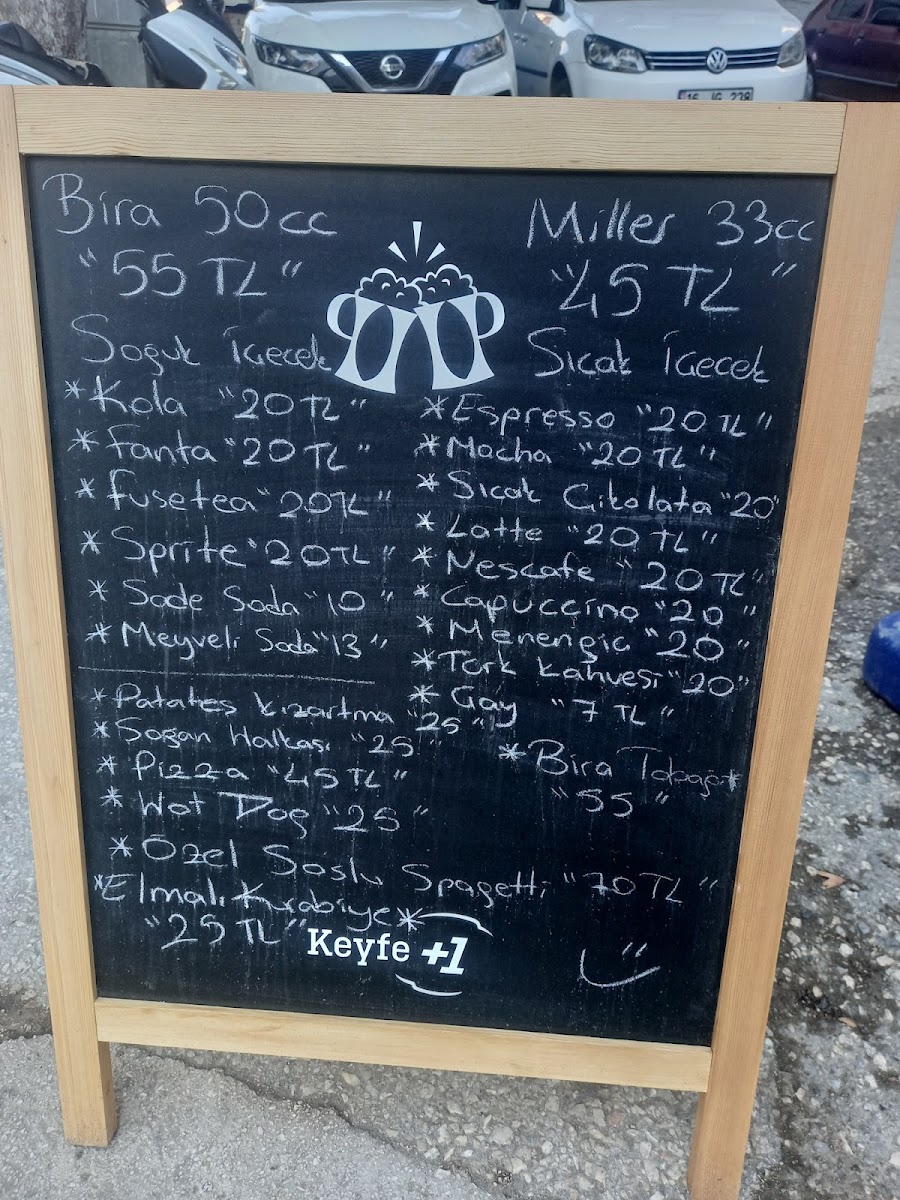 16 JG 238
Bira 50cc
"55 TL"
Miller 33cc
"45 TL"
Soğuk İçecek
*Kola "20 TL"
*Fanta "20 TL"
*Fusetea "20TL"
*Sprite "20TL"
*Sade Soda "10"
*Meyveli Soda "13"
Sıcak İçecek
*Espresso "20 TL"
*Mocha "20 TL"
*Sıcak Çikolata "20"
*Latte "20 TL"
*Nescafe "20 TL"
*Capuccino "20"
*Menengiç "20"
*Türk Kahvesi "20"
*Çay "7 TL"
*Patates Kızartma "25"
*Soğan Halkası "25"
*Pizza "45TL"
*Hot Dog "25"
*Özel Soslu Spagetti "70 TL"
*Elmalı Kurabiye*
"25 TL"
*Bira Tabağı*
"55"
Keyfe +1